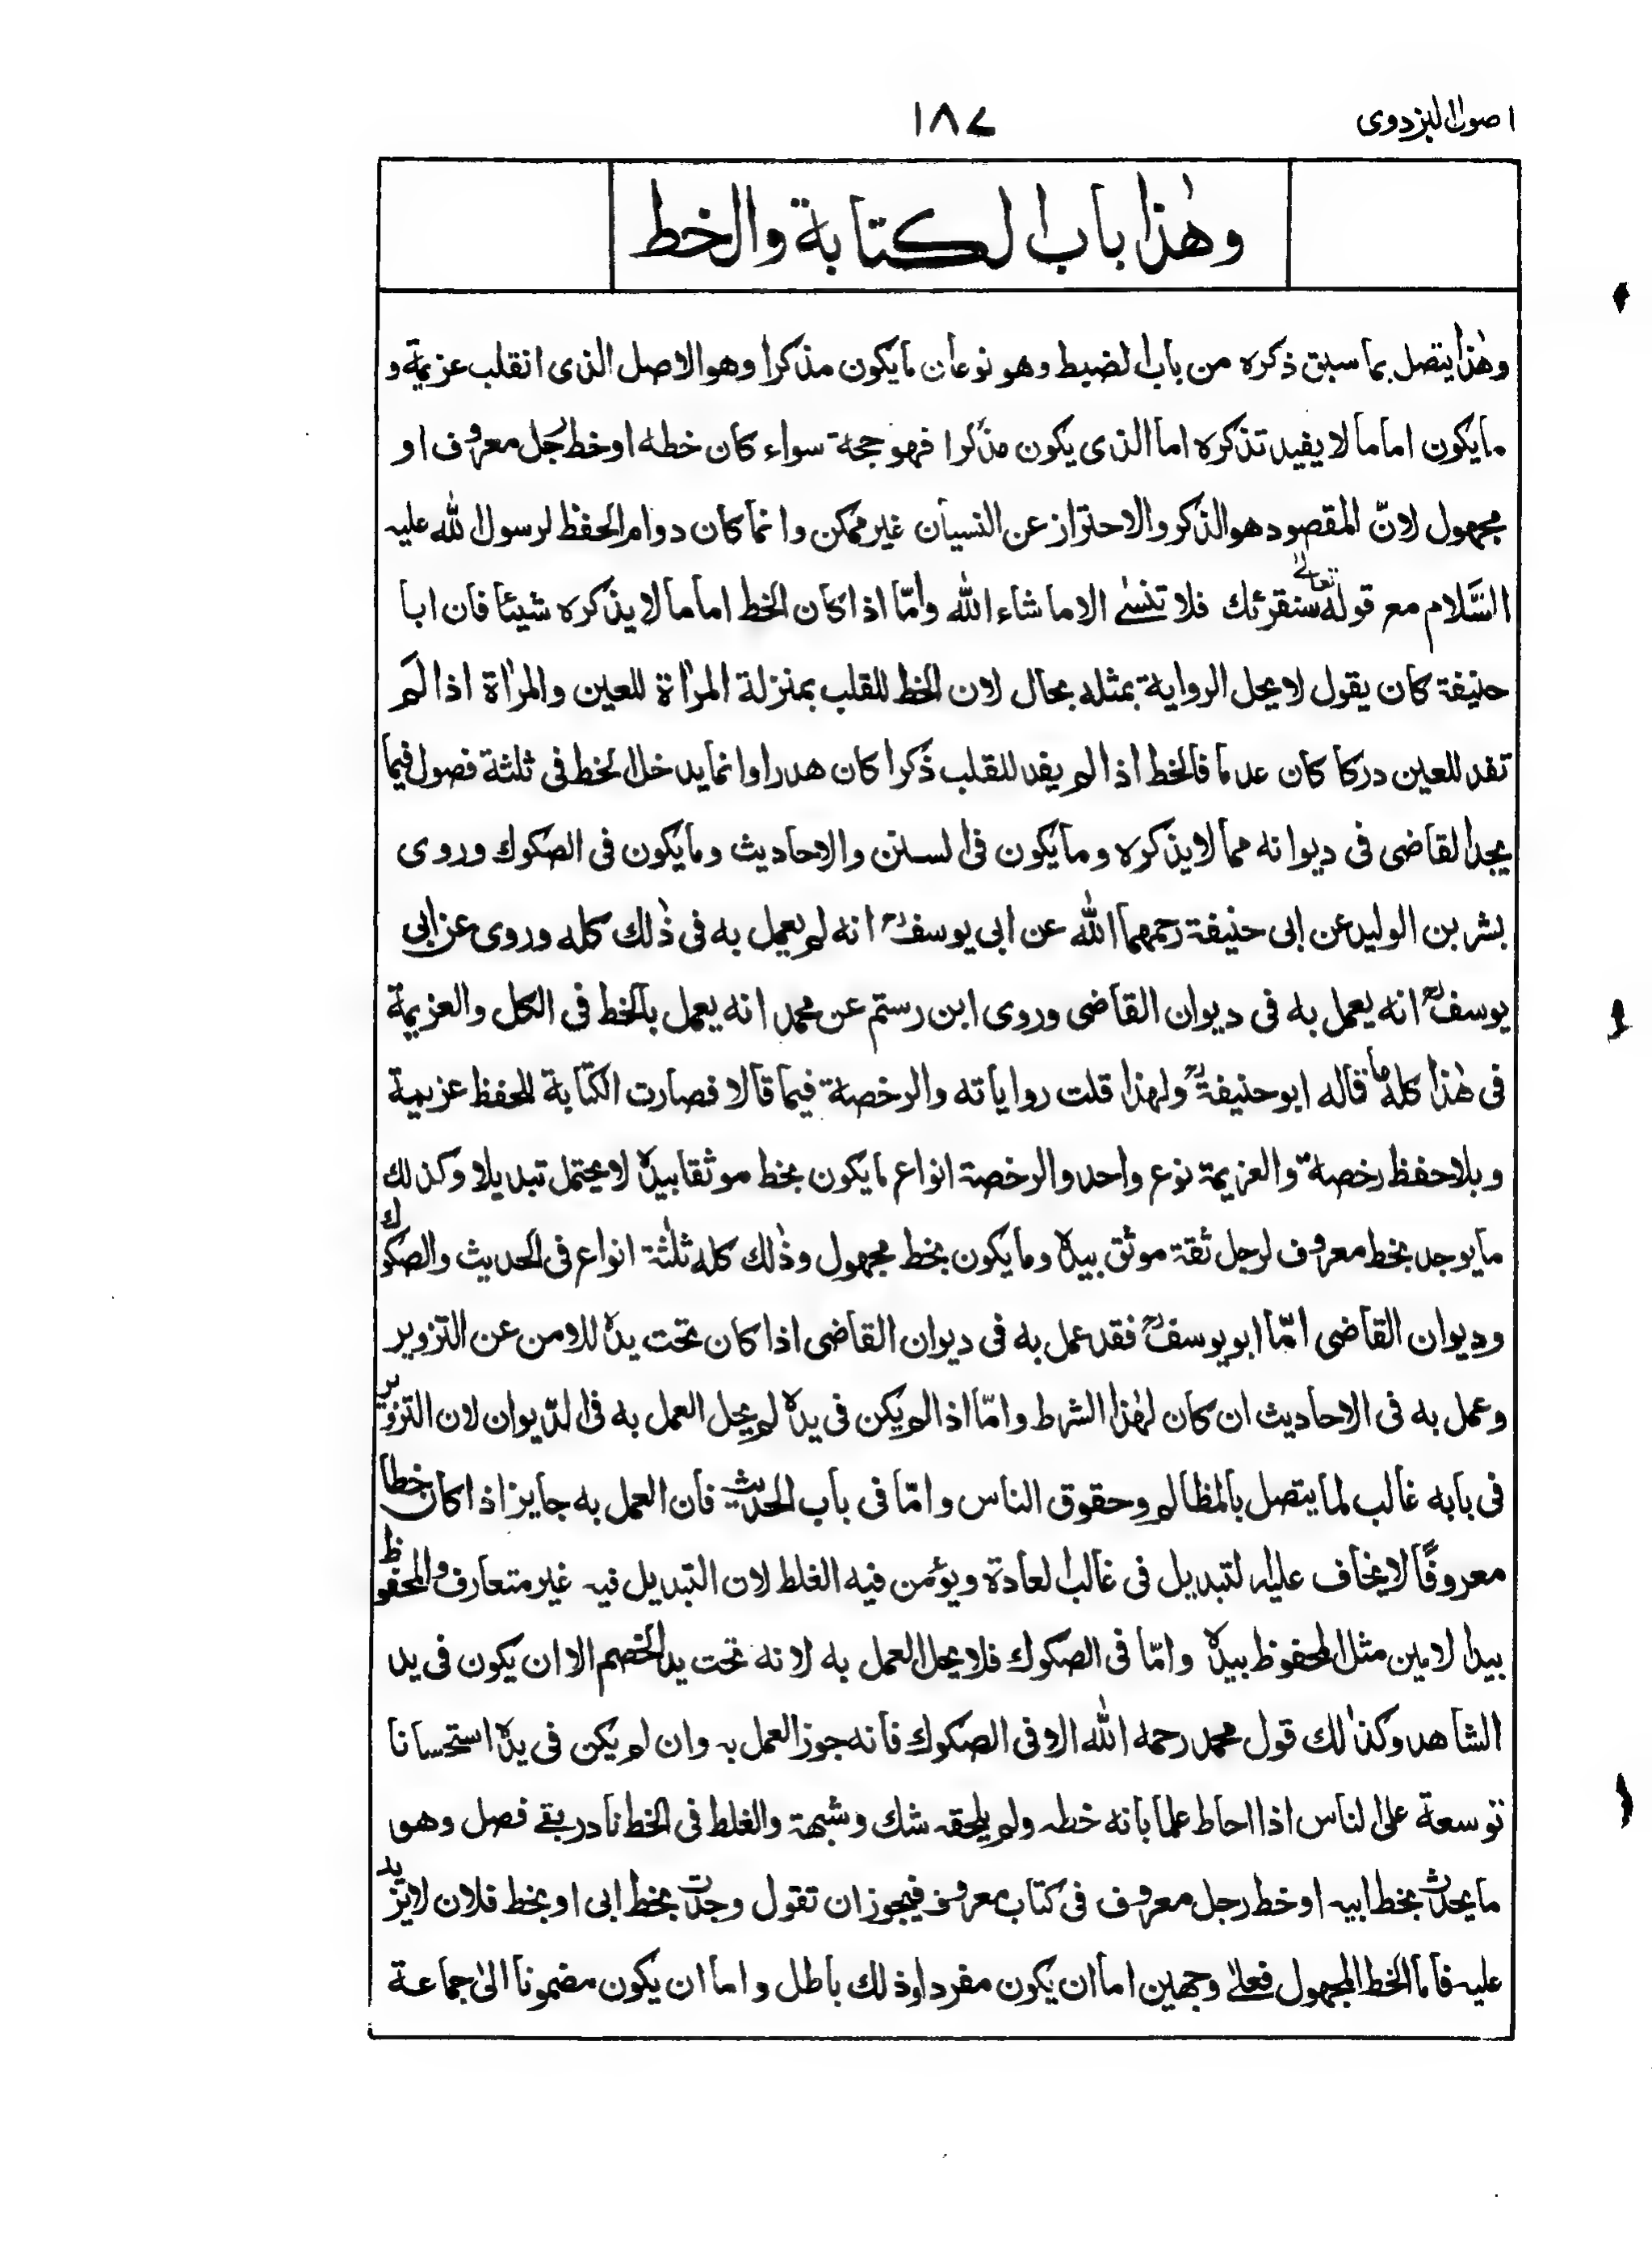 اصول البزدوى
١٨٧
وهٰذا باب الكتابة والخط
وهٰذا يتصل بما سبق ذكره من باب الضبط وهو نوعان ما يكون مذكرا وهو الاصل الذى انقلب عزيمة و
مايكون اماما لا يفيد تذكره اما الذى يكون مذكرا فهو حجة سواء كان خطه او خط رجل معروف او
مجهول لانّ المقصود هو الذكر والاحتراز عن النسيان غير ممكن وانما كان دوام الحفظ لرسول الله عليه
السَّلام مع قوله تعالىٰ سنقرئك فلا تنسىٰ الا ما شاء الله وامّا اذا كان الخط اماما لا يذكره شيئا فان ابا
حنيفة كان يقول لا يحل الرواية بمثله بحال لان الخط للقلب بمنزلة المرأة للعين والمرأة اذا لم
تفد للعين دركا كان عدما فالخط اذا لم يفد للقلب ذكرا كان هدرا وانما يدخل الخط فى ثلثة فصول فيما
يجد القاضى فى ديوانه مما لا يذكره وما يكون فى السنن والاحاديث وما يكون فى الصكوك وروى
بشر بن الوليد عن ابى حنيفة رحمهما الله عن ابى يوسفؒ انه لم يعمل به فى ذٰلك كله وروى عن ابى
يوسفؒ انه يعمل به فى ديوان القاضى وروى ابن رستم عن محمد انه يعمل بالخط فى الكل والعزيمة
فى هٰذا كله ما قاله ابو حنيفةؒ ولهذا قلت رواياته والرخصة فيما قالا فصارت الكتابة للحفظ عزيمة
وبلا حفظ رخصة والعزيمة نوع واحد والرخصة انواع ما يكون بخط موثقا بيده لا يحتمل تبديلا وكذلك
ما يوجد بخط معروف لرجل ثقة موثق بيده وما يكون بخط مجهول وذٰلك كله ثلٰثة انواع فى الحديث والصكوك
وديوان القاضى امّا ابو يوسفؒ فقد عمل به فى ديوان القاضى اذا كان تحت يده للامن عن التزوير
وعمل به فى الاحاديث ان كان لهٰذا الشرط وامّا اذا لم يكن فى يده لم يحل العمل به فى الدّيوان لان التزوير
فى بابه غالب لما يتصل بالمظالم وحقوق الناس وامّا فى باب الحديث فان العمل به جايز اذا كان خطا
معروفًا لا يخاف عليه التبديل فى غالب العادة ويؤمن فيه الغلط لان التبديل فيه غير متعارف والمحفوظ
بيد الامين مثل المحفوظ بيده وامّا فى الصكوك فلا يحل العمل به لانه تحت يد الخصم الا ان يكون فى يد
الشاهد وكذٰلك قول محمد رحمه الله الا فى الصكوك فانه جوز العمل به وان لم يكن فى يده استحسانا
توسعة على الناس اذا احاط علما بانه خطه ولم يلحقه شك وشبهة والغلط فى الخط نادر بقے فصل وهو
ما يحدث بخط ابيه او خط رجل معروف فى كتاب معروف فيجوز ان تقول وجدت بخط ابى او بخط فلان لا يزيد
عليه فاما الخط المجهول فعلےٰ وجهين اما ان يكون مفردا وذلك باطل واما ان يكون مضمونا الىٰ جماعة